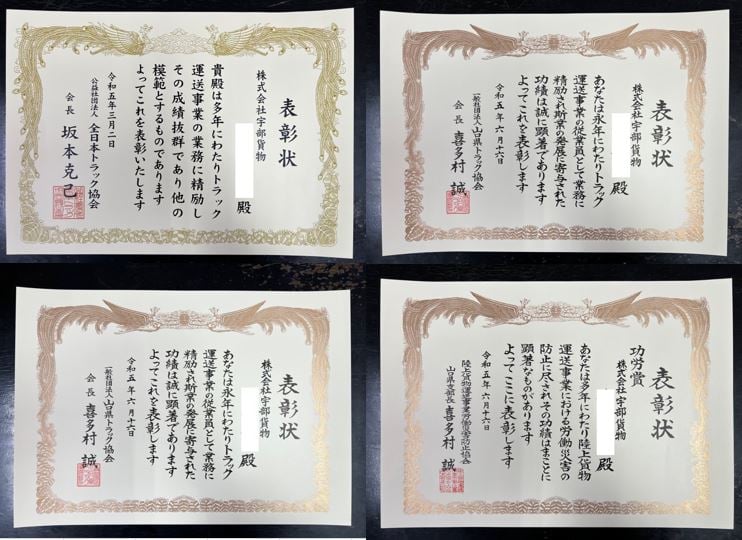 表彰状
株式会社宇部貨物
殿
貴殿は多年にわたりトラック
運送事業の業務に精励し
その成績抜群であり他の
模範とするものであります
よってこれを表彰いたします
令和五年三月二日
公益社団法人 全日本トラック協会
会長 坂本克己
表彰状
株式会社宇部貨物
殿
あなたは永年にわたりトラック
運送事業の従業員として業務に
精励され斯業の発展に寄与された
功績は誠に顕著であります
よってこれを表彰します
令和五年六月十六日
一般社団法人山口県トラック協会
会長 喜多村誠
表彰状
株式会社宇部貨物
殿
あなたは永年にわたりトラック
運送事業の従業員として業務に
精励され斯業の発展に寄与された
功績は誠に顕著であります
よってこれを表彰します
令和五年六月十六日
一般社団法人山口県トラック協会
会長 喜多村誠
表彰状
功労賞
株式会社宇部貨物
殿
あなたは多年にわたり陸上貨物
運送事業における労働災害の
防止に尽されその功績はまことに
顕著なものがあります
よってここに表彰します
令和五年六月十六日
陸上貨物運送事業労働災害防止協会
山口県支部長 喜多村誠